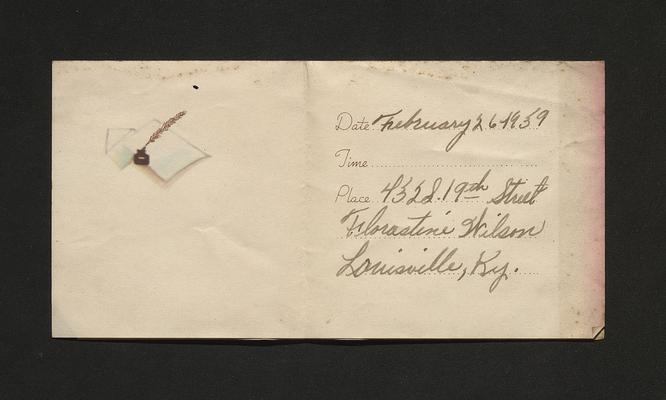 Date February 26-1939
Time
Place 432 S. 19th Street
Florastine Wilson
Louisville, Ky.